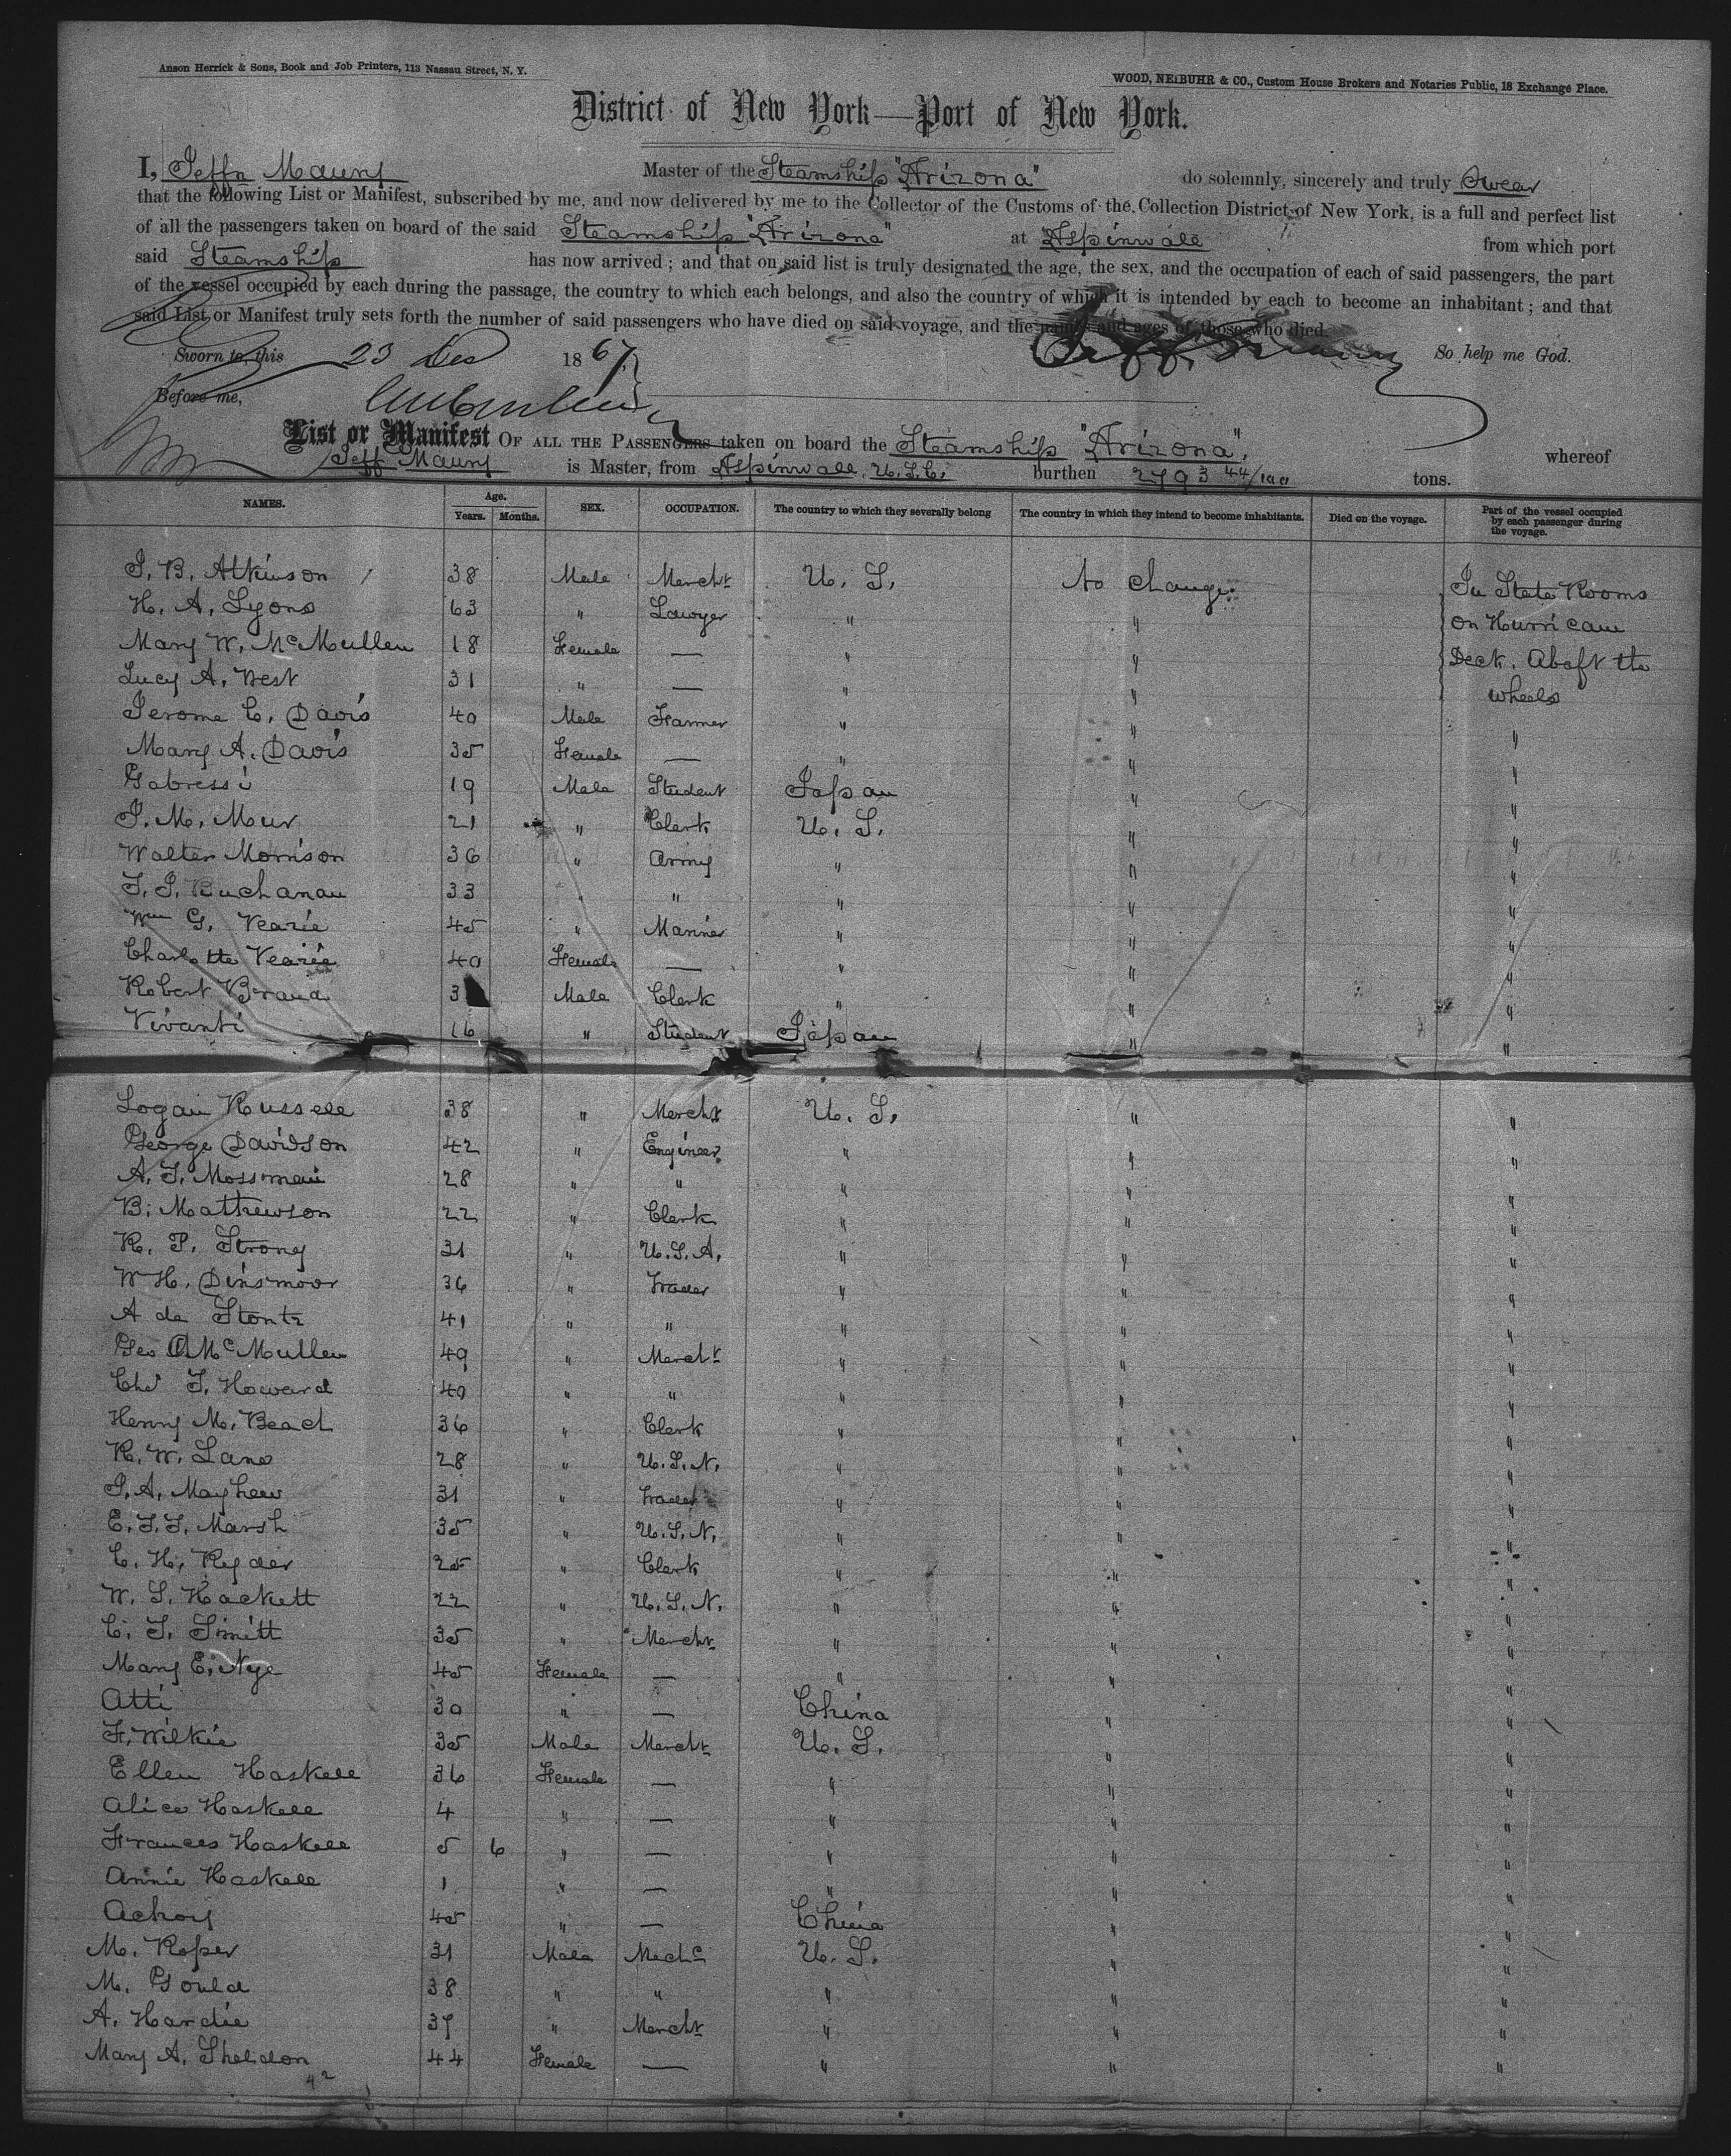 Anson Herrick & Sons, Book and Job Printers, 113 Nassau Street, N. Y.
WOOD, NEIBUHR & CO., Custom House Brokers and Notaries Public, 18 Exchange Place.
District of New York—Port of New York.
I, Jeffn Maury Master of the Steamship "Arizona" do solemnly, sincerely and truly Swear
that the following List or Manifest, subscribed by me, and now delivered by me to the Collector of the Customs of the Collection District of New York, is a full and perfect list
of all the passengers taken on board of the said Steamship "Arizona" at Aspinwall from which port
said Steamship has now arrived; and that on said list is truly designated the age, the sex, and the occupation of each of said passengers, the part
of the vessel occupied by each during the passage, the country to which each belongs, and also the country of which it is intended by each to become an inhabitant; and that
said List or Manifest truly sets forth the number of said passengers who have died on said voyage, and the names and ages of those who died.
Sworn to, this 23 Dec 1867 Jeff Maury So help me God.
Before me,
List or Manifest OF ALL THE PASSENGERS taken on board the Steamship "Arizona", whereof
Jeff Maury is Master, from Aspinwall, U.S.C. burthen 2793 44/100 tons.
NAMES. Age. Years. Months. SEX. OCCUPATION. The country to which they severally belong The country in which they intend to become inhabitants. Died on the voyage. Part of the vessel occupied by each passenger during the voyage.
J. B. Atkinson 38 Male Mercht U. S. No change In State Rooms
H. A. Lyons 63 " Lawyer " " on Hurricane
Mary W. McMullen 18 Female — " " Deck. Abaft the
Lucy A. West 31 " — " " wheels
Jerome C. Davis 40 Male Farmer " " "
Mary A. Davis 35 Female — " " "
Gabressi 19 Male Student Japan " "
J. M. Mur 21 " Clerk U. S. " "
Walter Morrison 36 " Army " " "
T. J. Buchanan 33 " " " " "
Wm G. Vearie 45 " Mariner " " "
Charlotte Vearie 40 Female — " " "
Robert Brand 3 Male Clerk " " "
Vivanti 16 " Student Japan " "
Logan Russell 38 " Mercht U. S. " "
George Davidson 42 " Engineer " " "
A. T. Mossman 28 " " " " "
B. Mathewson 22 " Clerk " " "
R. P. Strong 31 " U.S.A. " " "
W H. Dinsmoor 36 " Trader " " "
A de Stontz 41 " " " " "
Geo A McMullen 49 " Mercht " " "
Chs T. Howard 40 " " " " "
Henry M. Beach 36 " Clerk " " "
R. W. Lane 28 " U.S.N. " " "
J. A. Mayhew 31 " Trader " " "
E. T. T. Marsh 35 " U.S.N. " " "
C. H. Ryder 25 " Clerk " " "
W. S. Hackett 22 " U.S.N. " " "
C. T. Smitt 35 " Mercht " " "
Mary E. Nye 45 Female — " " "
Atti 30 " — China " "
F. Wilkie 35 Male Mercht U. S. " "
Ellen Haskell 36 Female — " " "
Alice Haskell 4 " — " " "
Frances Haskell 5 6 " — " " "
Annie Haskell 1 " — " " "
Achoy 45 " — China " "
M. Roper 31 Male Mechc U. S. " "
M. Gould 38 " " " " "
A. Hardie 37 " Mercht " " "
Mary A. Sheldon 44 Female — " " "
42